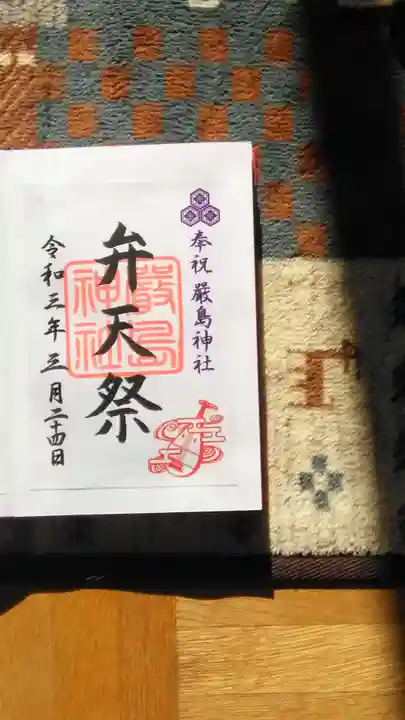 奉祝 厳島神社
弁天祭
厳島神社
令和三年三月二十四日